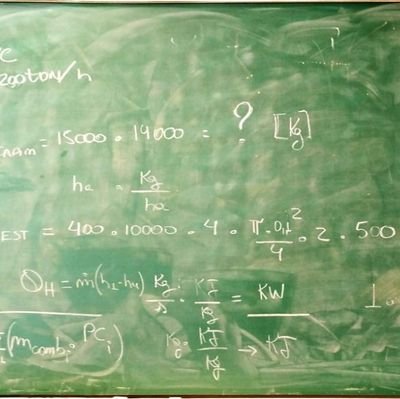 200TON/h
= 15000 · 14000 = ? [Kg]
ha · Kg/ha
EST = 400 · 10000 · 4 · π·0,1²/4 · 2 · 500
Q_H = ṁ(h₁-h₄) Kg/s · KJ/Kg = KW
(m_comb_i · PC_i) Kg · KJ/Kg → KJ